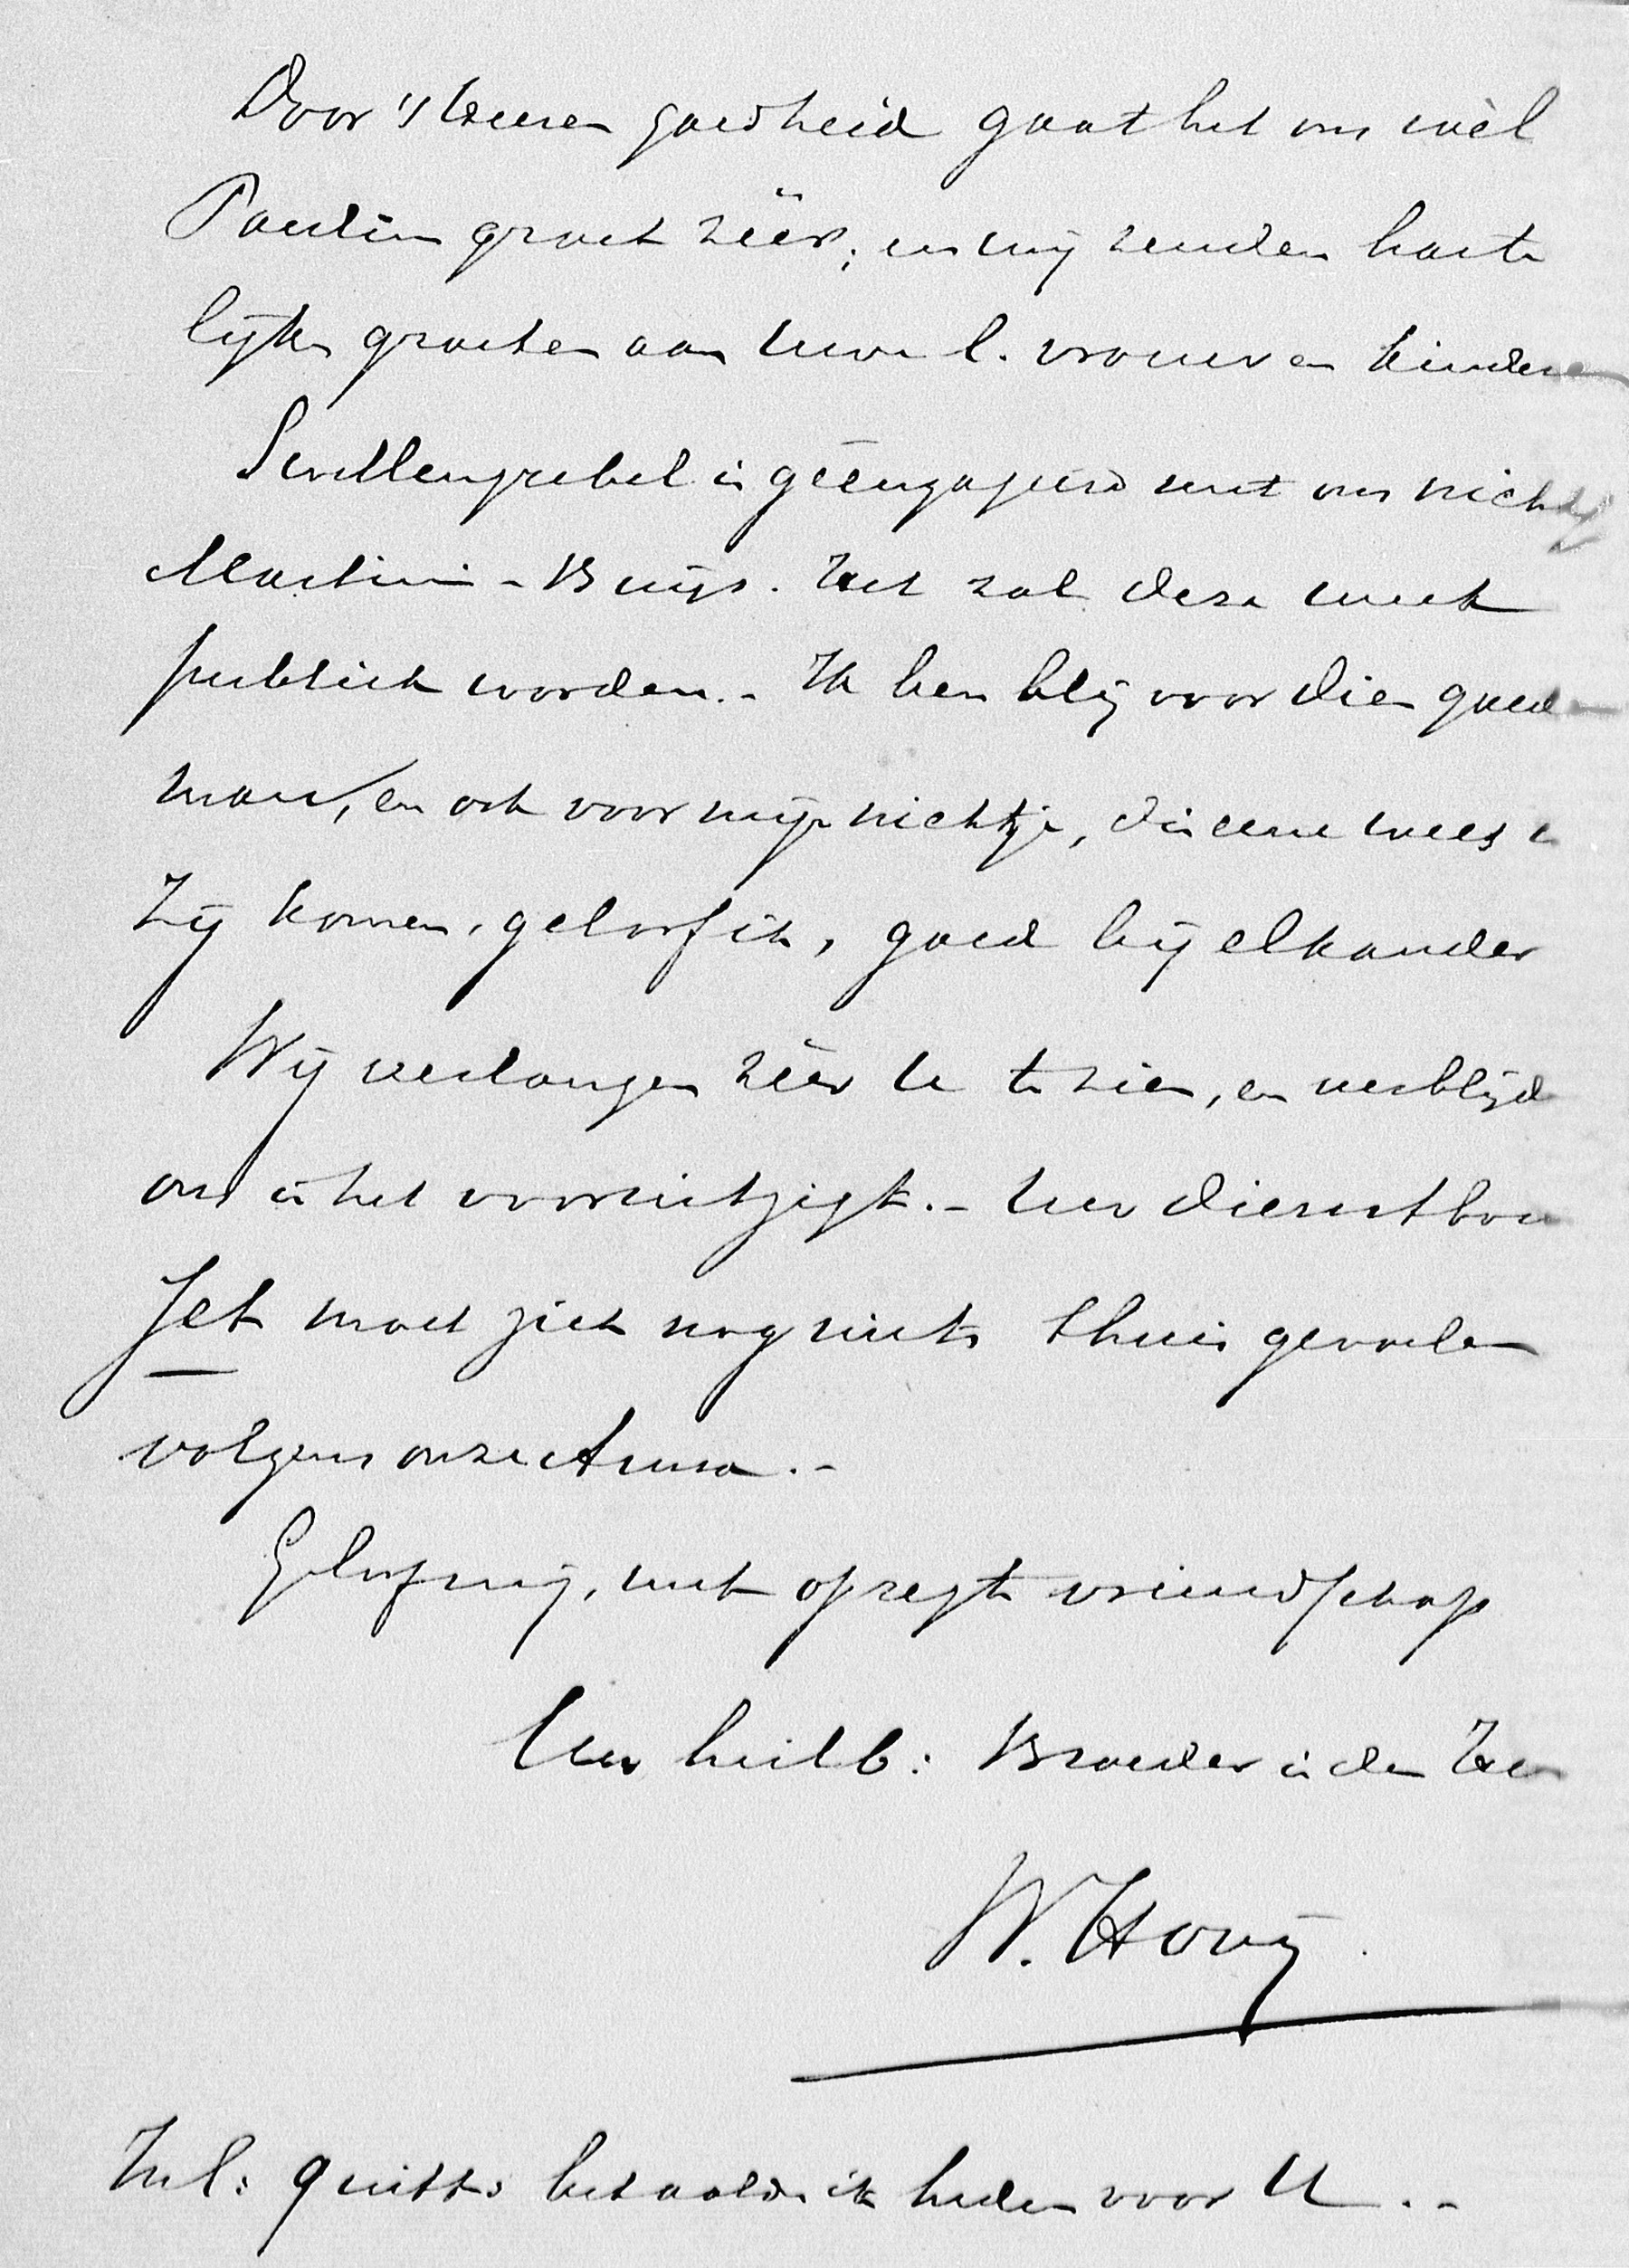 Door 's Heeren goedheid gaat het ons wèl
Pauline groet zéér; en wij zenden harte
lijke groeten aan Uwe l. vrouw en kinderen
Swellengrebel is geëngageerd met ons nichtje
Martini-Buijs. Het zal deze week
publiek worden.- Ik ben blij voor dien goeden
man, en ook voor mijn nichtje, die eene wees is
Zij komen, geloof ik, goed bij elkander
Wij verlangen zéér U te zien, en verblijden
ons in het vooruitzigt.- Uw dienstbode
Jet moet zich nog niets thuis gevoelen
volgens onze Anna.-
Geloof mij, met opregte vriendschap
Uw heilb: Broeder in den Heer
W. Hovy
Incl: quitt: betaalde ik heden voor U.-